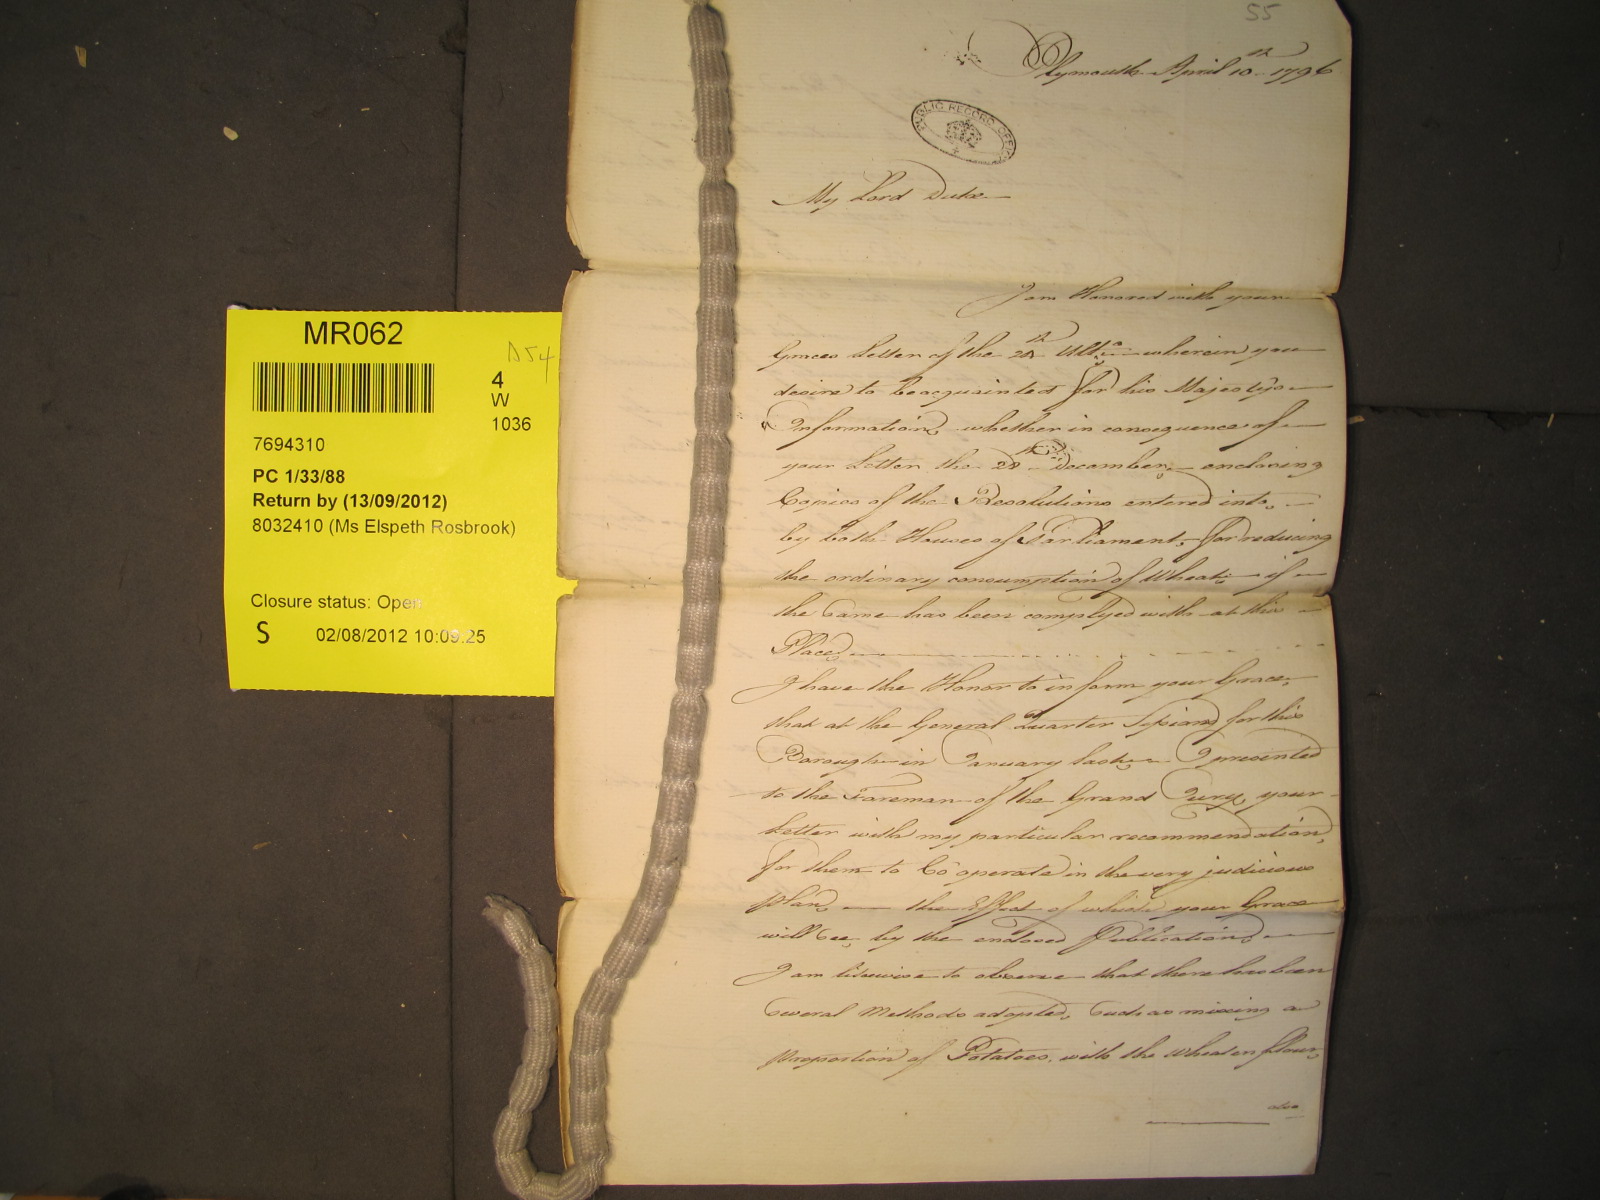 55
Plymouth April 10th 1796
PUBLIC RECORD OFFICE
My Lord Duke
I am Honored with your
Graces Letter of the 28th Ulto wherein you
desire to be acquainted for his Majestys
Information, whether in consequence of
your Letter the 28th December, enclosing
Copies of the Resolutions entered into,
by both Houses of Parliament, for reducing
the ordinary consumption of Wheat, if
the Same has been complyed with at this
Place,
I have the Honor to inform your Grace,
that at the General Quarter Sessions for this
Borough in January last, I presented
to the Foreman of the Grand Jury, your
Letter with my particular recommendation,
for them to Co operate in the very judicious
plan, the Effect of which your Grace
will see, by the enclosed Publication,
I am likewise to observe that there has been
Several Methods adopted, Such as mixing a
proportion of Potatoes, with the wheaten flour,
also
MR062
D54
4
W
1036
7694310
PC 1/33/88
Return by (13/09/2012)
8032410 (Ms Elspeth Rosbrook)
Closure status: Open
S 02/08/2012 10:09:25